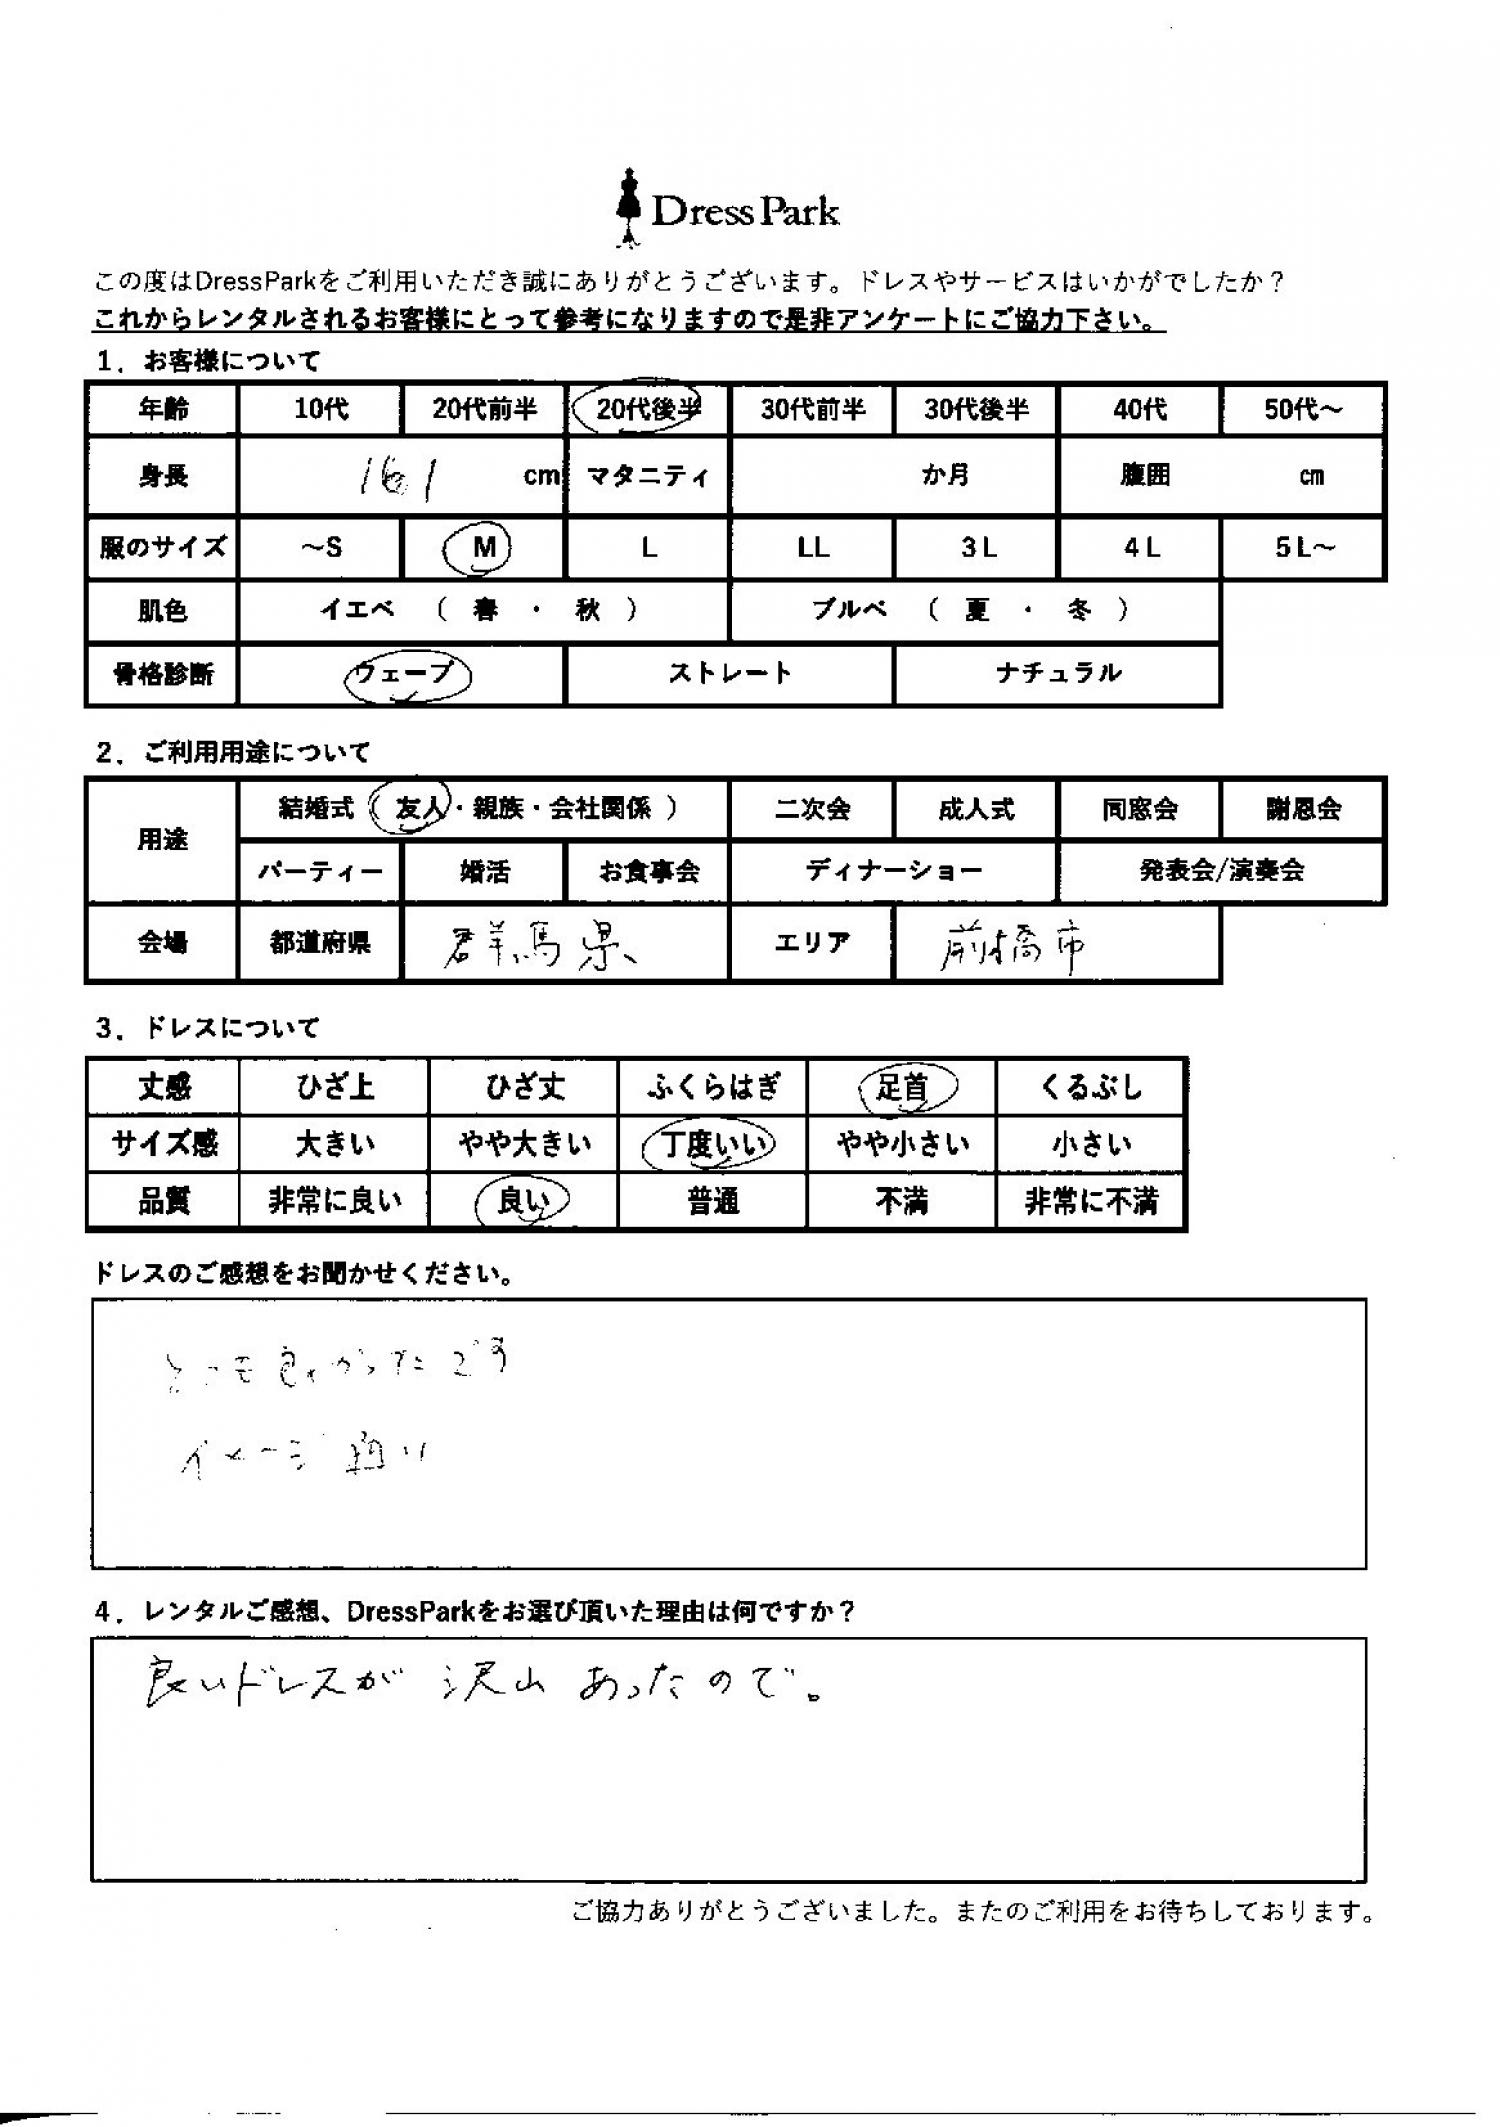 Dress Park
この度はDressParkをご利用いただき誠にありがとうございます。ドレスやサービスはいかがでしたか？
これからレンタルされるお客様にとって参考になりますので是非アンケートにご協力下さい。
1．お客様について
年齢 10代 20代前半 20代後半 30代前半 30代後半 40代 50代～
身長 161 cm マタニティ か月 腹囲 ㎝
服のサイズ ～S M L LL 3L 4L 5L～
肌色 イエベ （ 春 ・ 秋 ） ブルベ （ 夏 ・ 冬 ）
骨格診断 ウェーブ ストレート ナチュラル
2．ご利用用途について
用途 結婚式（ 友人・親族・会社関係 ） 二次会 成人式 同窓会 謝恩会
パーティー 婚活 お食事会 ディナーショー 発表会/演奏会
会場 都道府県 群馬県 エリア 前橋市
3．ドレスについて
丈感 ひざ上 ひざ丈 ふくらはぎ 足首 くるぶし
サイズ感 大きい やや大きい 丁度いい やや小さい 小さい
品質 非常に良い 良い 普通 不満 非常に不満
ドレスのご感想をお聞かせください。
とても良かったです
イメージ通り
4．レンタルご感想、DressParkをお選び頂いた理由は何ですか？
良いドレスが沢山あったので。
ご協力ありがとうございました。またのご利用をお待ちしております。